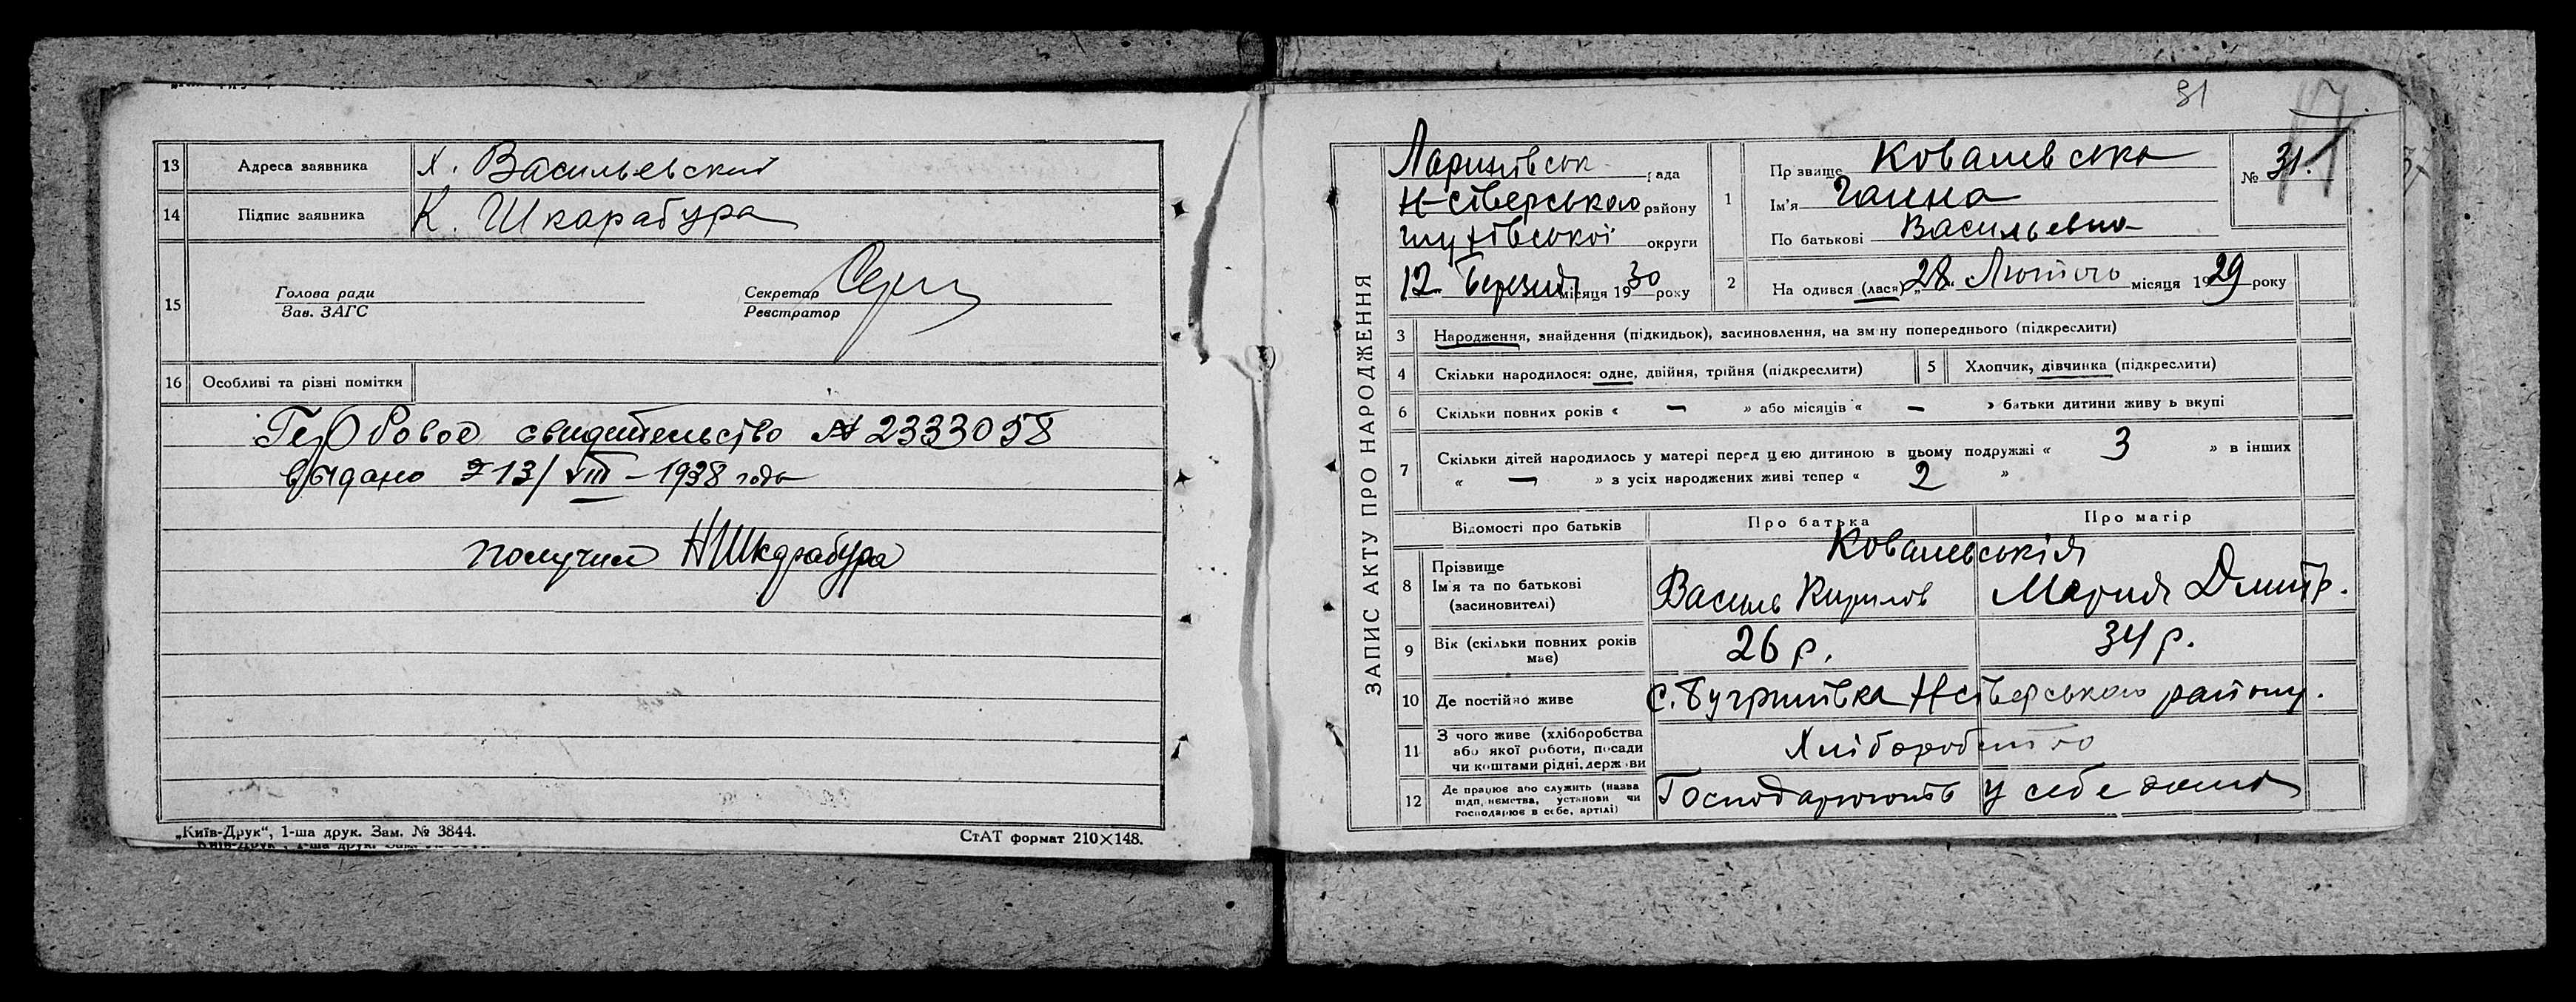 13 Адреса заявника х. Васильевский
14 Підпис заявника К. Шкарабура
15 Голова ради Секретар
Зав. ЗАГС Реєстратор
16 Особливі та різні помітки
Гербовое свидетельство № 2333058
выдано 13/VIII – 1938 года
получил Н Шкарабура
„Київ-Друк“, 1-ша друк. Зам. № 3844. СтАТ формат 210×148.
31
ЗАПИС АКТУ ПРО НАРОДЖЕННЯ
Лариновськ рада
Н-Сіверського району
Глухівської округи
12 Березня місяця 1930 року
1 Прізвище Ковалевська
Ім'я Ганна
По батькові Васильевна
№ 31.
2 На одився (лася) „28“ Лютого місяця 1929 року
3 Народження, знайдення (підкидьок), засиновлення, на зміну попереднього (підкреслити)
4 Скільки народилося: одне, двійня, трійня (підкреслити) 5 Хлопчик, дівчинка (підкреслити)
6 Скільки повних років « – » або місяців « – » батьки дитини живу ь вкупі
7 Скільки дітей народилось у матері перед цею дитиною в цьому подружжі « 3 » в інших
« – » з усіх народжених живі тепер « 2 »
Відомості про батьків Про батька Про матір
8 Прізвище Ковалевськія
Ім'я та по батькові
(засиновителі) Василь Кирилов Мария Дмитр.
9 Вік (скільки повних років має) 26 р. 34 р.
10 Де постійно живе с. Бугринівка Н Сіверського району.
11 З чого живе (хліборобства
або якої роботи, посади
чи коштами рідні, держ ви Хліборобство
12 Де працює або служить (назва
підприємства, установи чи
господарює в себе, артілі) Господарюють у себе дома